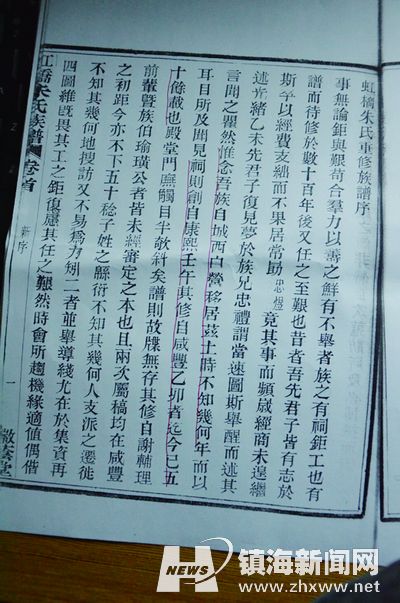 虹橋朱氏重修族譜序
事無論鉅與艱苟合羣力以善之鮮有不舉者族之有祠鉅工也有
譜而待修於數十百年後又任之至艱也昔者吾先君子皆有志於
斯乎以經費支絀而不果居常勖忠煜竟其事而頻歲經商未遑繼
述光緒乙未先君子復見夢於族兄忠禮謂當速圖斯舉醒而述其
言聞之瞿然惟念吾族自城西白鶯移居茲土時不知幾何年而以
耳目所及聞見祠則創自康熙壬午其修自咸豐乙卯者迄今已五
十餘載也殿堂門廡觸目半欹斜矣譜則故牒無存其修自謝輔理
前輩暨族伯瑜璜公者皆未經審定之本也且兩次屬稿均在咸豐
之初距今亦不下五十稔子姓之緜衍不知其幾何人支派之遷徙
不知其幾何地搜訪又不易為力矧二者並舉導綫尤在於集資再
四圖維既畏其工之鉅復憙其任之艱然時會所趨機緣適值偶偕
虹橋朱氏族譜 卷首
新序
一
NEWS
镇海新闻网
www.zhxww.net